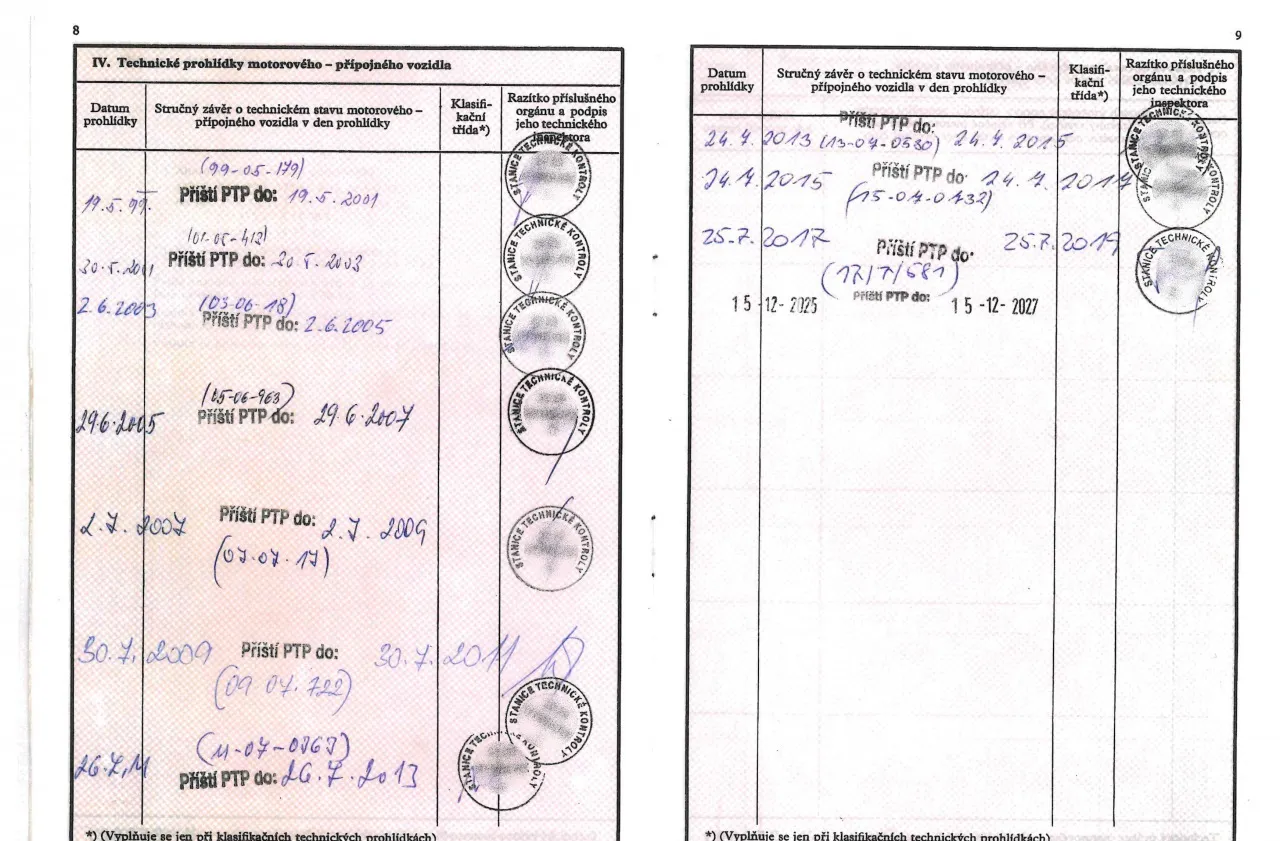 8
IV. Technické prohlídky motorového – přípojného vozidla
Datum prohlídky
Stručný závěr o technickém stavu motorového – přípojného vozidla v den prohlídky
Klasifi-
kační
třída*)
Razítko příslušného
orgánu a podpis
jeho technického
inspektora
(99-05-179)
19.5.99. Příští PTP do: 19.5.2001
STANICE TECHNICKÉ KONTROLY
(01-05-412)
30.5.2001 Příští PTP do: 30 5. 2003
STANICE TECHNICKÉ KONTROLY
2.6.2003 (03-06-18)
Příští PTP do: 2.6.2005
STANICE TECHNICKÉ KONTROLY
(05-06-963)
29.6.2005 Příští PTP do: 29.6.2007
STANICE TECHNICKÉ KONTROLY
2.7. 2007 Příští PTP do: 2.7. 2009
(07-07-17)
STANICE TECHNICKÉ KONTROLY
30.7.2009 Příští PTP do: 30.7.2011
(09 07. 722)
STANICE TECHNICKÉ KONTROLY
(11-07-0363)
26.7.11 Příští PTP do: 26.7.2013
STANICE TECHNICKÉ KONTROLY
*) (Vyplňuje se jen při klasifikačních technických prohlídkách)
9
Datum
prohlídky
Stručný závěr o technickém stavu motorového –
přípojného vozidla v den prohlídky
Klasifi-
kační
třída*)
Razítko příslušného
orgánu a podpis
jeho technického
inspektora
Příští PTP do:
24.7.2013 (13-07-0530) 24.7.2015
STANICE TECHNICKÉ KONTROLY
24.7.2015 Příští PTP do: 24.7.2017
(15-07-0732)
STANICE TECHNICKÉ KONTROLY
25.7.2017 Příští PTP do: 25.7.2019
(17/7/681)
STANICE TECHNICKÉ KONTROLY
15 -12- 2025 Příští PTP do: 15 -12- 2027
*) (Vyplňuje se jen při klasifikačních technických prohlídkách)